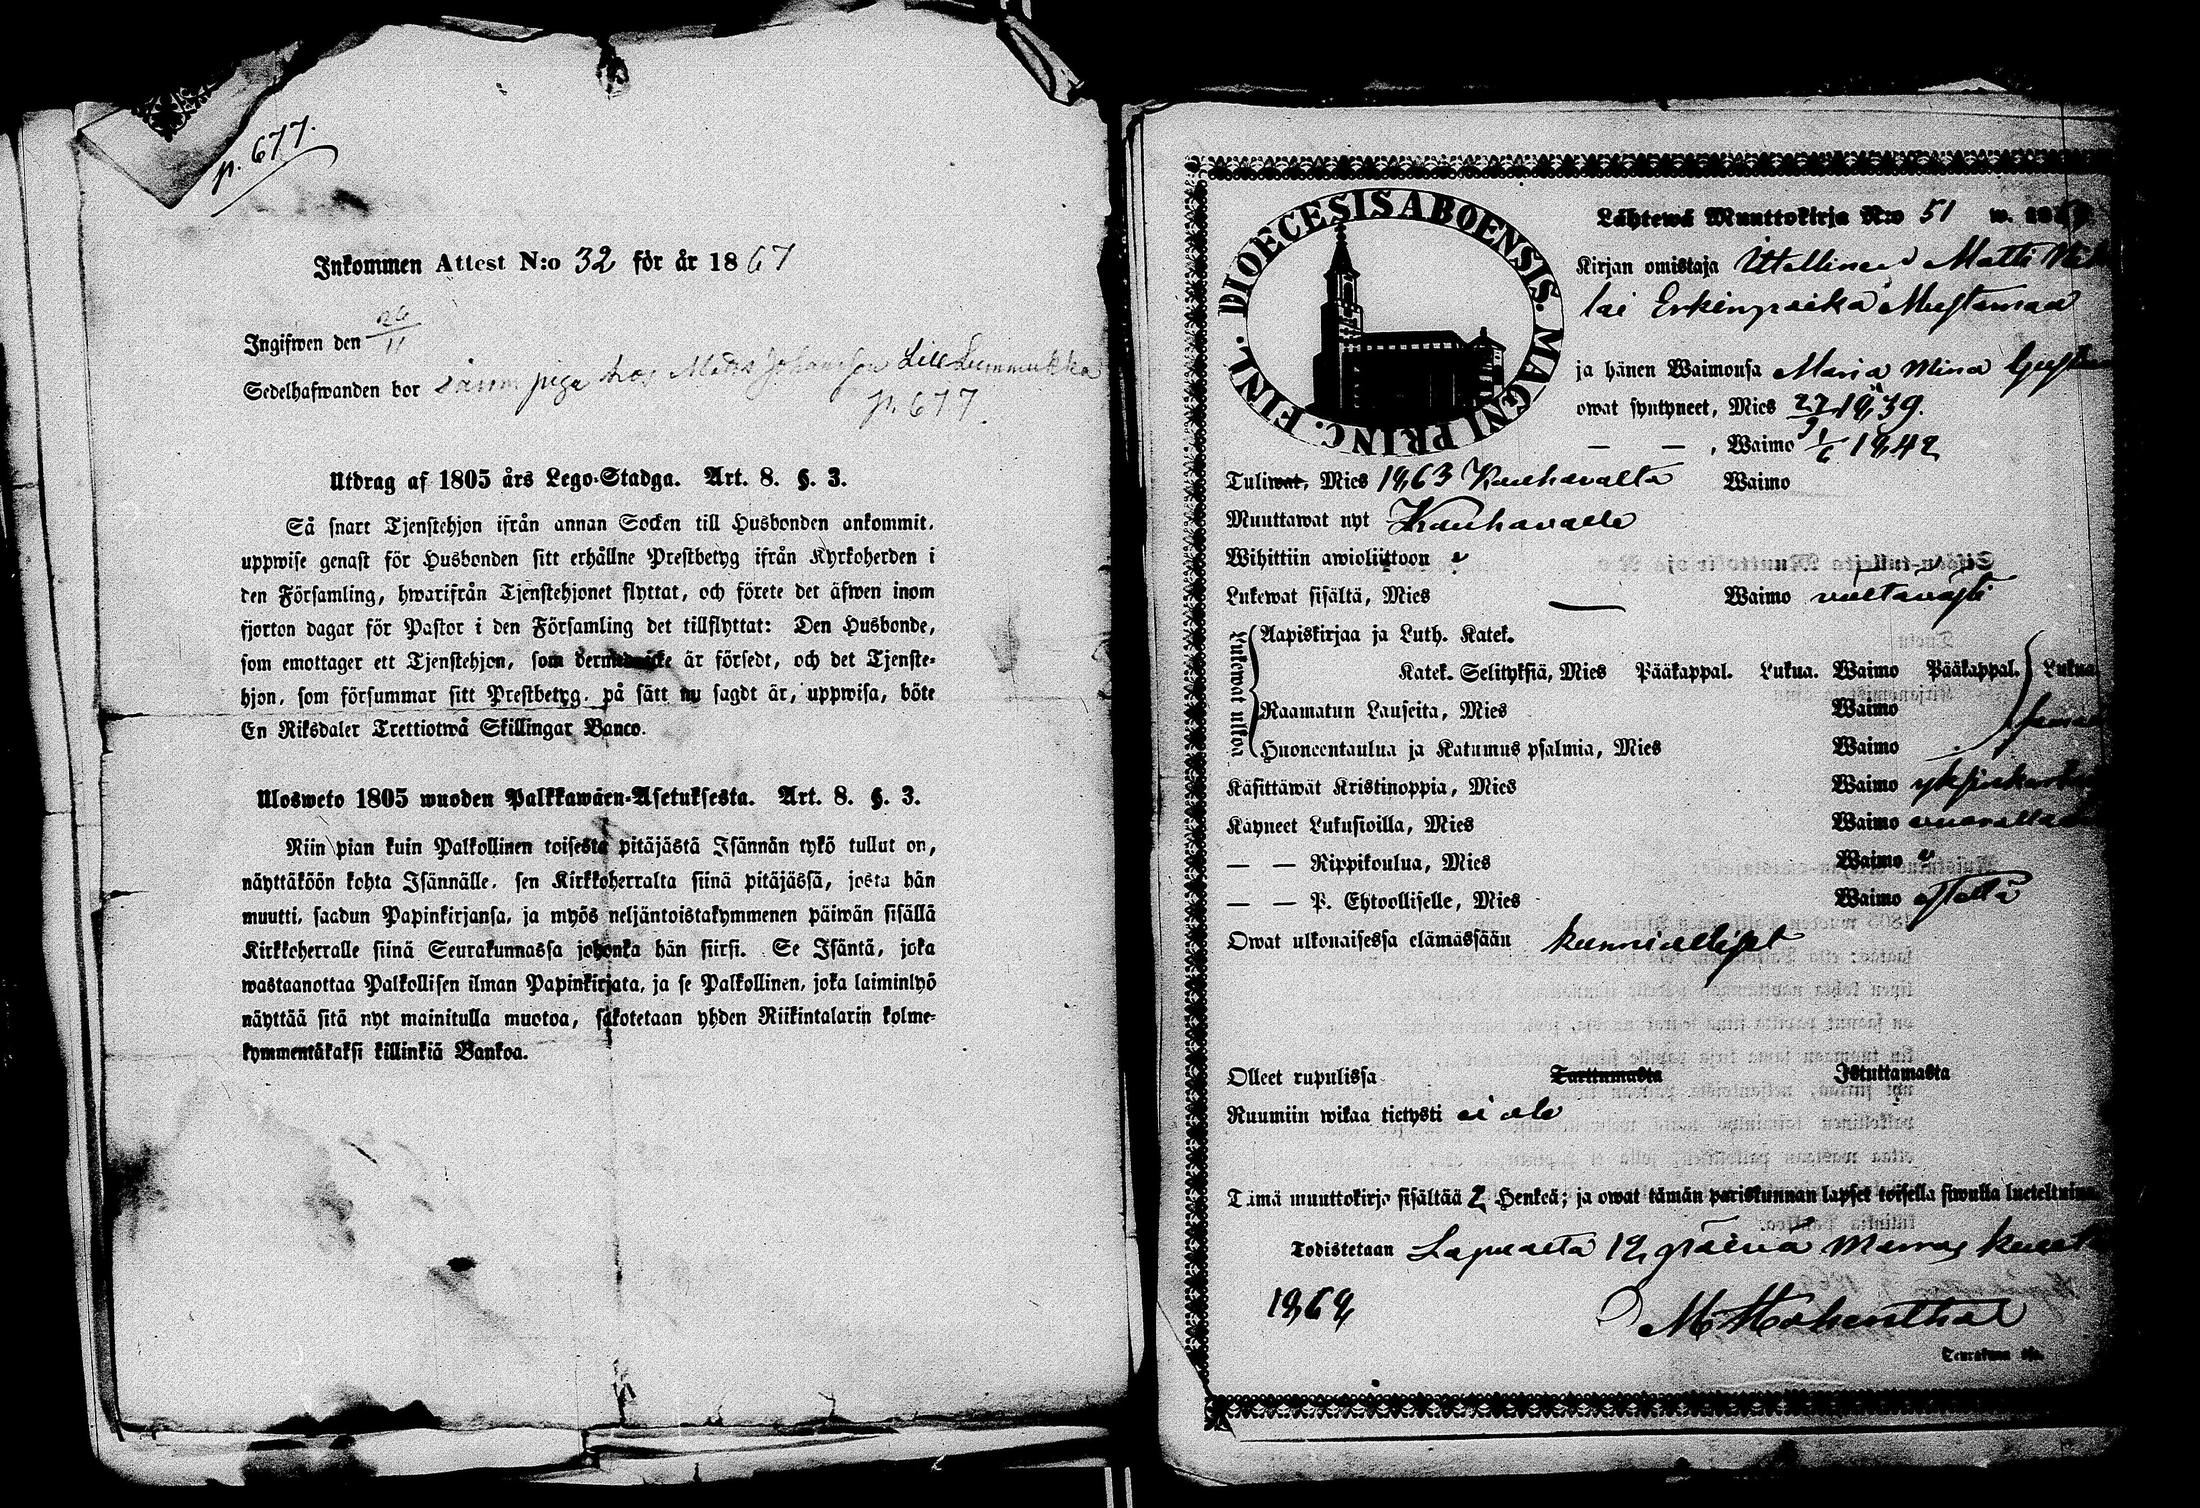 p. 677.
Inkommen Attest N:o 32 för år 1867
Ingifwen den 26/11
Sedelhafwanden bor såsom piga hos Matts Johansson Lill Lummukka
p. 677
Utdrag af 1805 års Lego-Stadga. Art. 8. §. 3.
Så snart Tjenstehjon ifrån annan Socken till Husbonden ankommit,
uppwise genast för Husbonden sitt erhållne Prestbetyg ifrån Kyrkoherden i
den Församling, hwarifrån Tjenstehjonet flyttat, och förete det äfwen inom
fjorton dagar för Pastor i den Församling det tillflyttat: Den Husbonde,
som emottager ett Tjenstehjon, som dermed icke är försedt, och det Tjenste-
hjon, som försummar sitt Prestbetyg, på sätt nu sagdt är, uppwisa, böte
En Riksdaler Trettiotwå Skillingar Banco.
Ulosweto 1805 wuoden Palkkawäen-Asetuksesta. Art. 8. §. 3.
Niin pian kuin Palkollinen toisesta pitäjästä Isännän tykö tullut on,
näyttäköön kohta Isännälle, sen Kirkkoherralta siinä pitäjässä, josta hän
muutti, saadun Papinkirjansa, ja myös neljäntoistakymmenen päiwän sisällä
Kirkkoherralle siinä Seurakunnassa johonka hän siirsi. Se Isäntä, joka
wastaanottaa Palkollisen ilman Papinkirjata, ja se Palkollinen, joka laiminlyö
näyttää sitä nyt mainitulla muotoa, sakotetaan yhden Riikintalarin kolme-
kymmentäkaksi killinkiä Bankoa.
DIOECESIS ABOENSIS. MAGNI PRINC. FINL.
Lähtewä Muuttokirja N:o 51 w. 186
Kirjan omistaja Itellinen Matti
lai Erkinpoika Mustamaa
ja hänen Waimonsa Maria Mina
owat syntyneet, Mies 27/9 1839.
— — , Waimo 1/6 1842
Tuliwat, Mies 1863 Kauhavalta Waimo
Muuttawat nyt Kauhavalle
Wihittiin awioliittoon
Lukewat sisältä, Mies — Waimo vältavästi
Lukewat ulkoa
Aapiskirjaa ja Luth. Katek.
Katek. Selityksiä, Mies Pääkappal. Lukua. Waimo Pääkappal. Lukua.
Raamatun Lauseita, Mies Waimo
Huoneentaulua ja Katumus psalmia, Mies Waimo
Käsittäwät Kristinoppia, Mies Waimo
Käyneet Lukusioilla, Mies Waimo
— — Rippikoulua, Mies Waimo
— — P. Ehtoolliselle, Mies Waimo
Owat ulkonaisessa elämässään kunnialliset
Olleet rupulissa Tarttumasta Istuttamasta
Ruumiin wikaa tietysti ei ole
Tämä muuttokirja sisältää 2 Henkeä; ja owat tämän pariskunnan lapset toisella siwulla lueteltuina.
Todistetaan Lapualta 18 päivä marras kuuta
1868
M Hohenthal